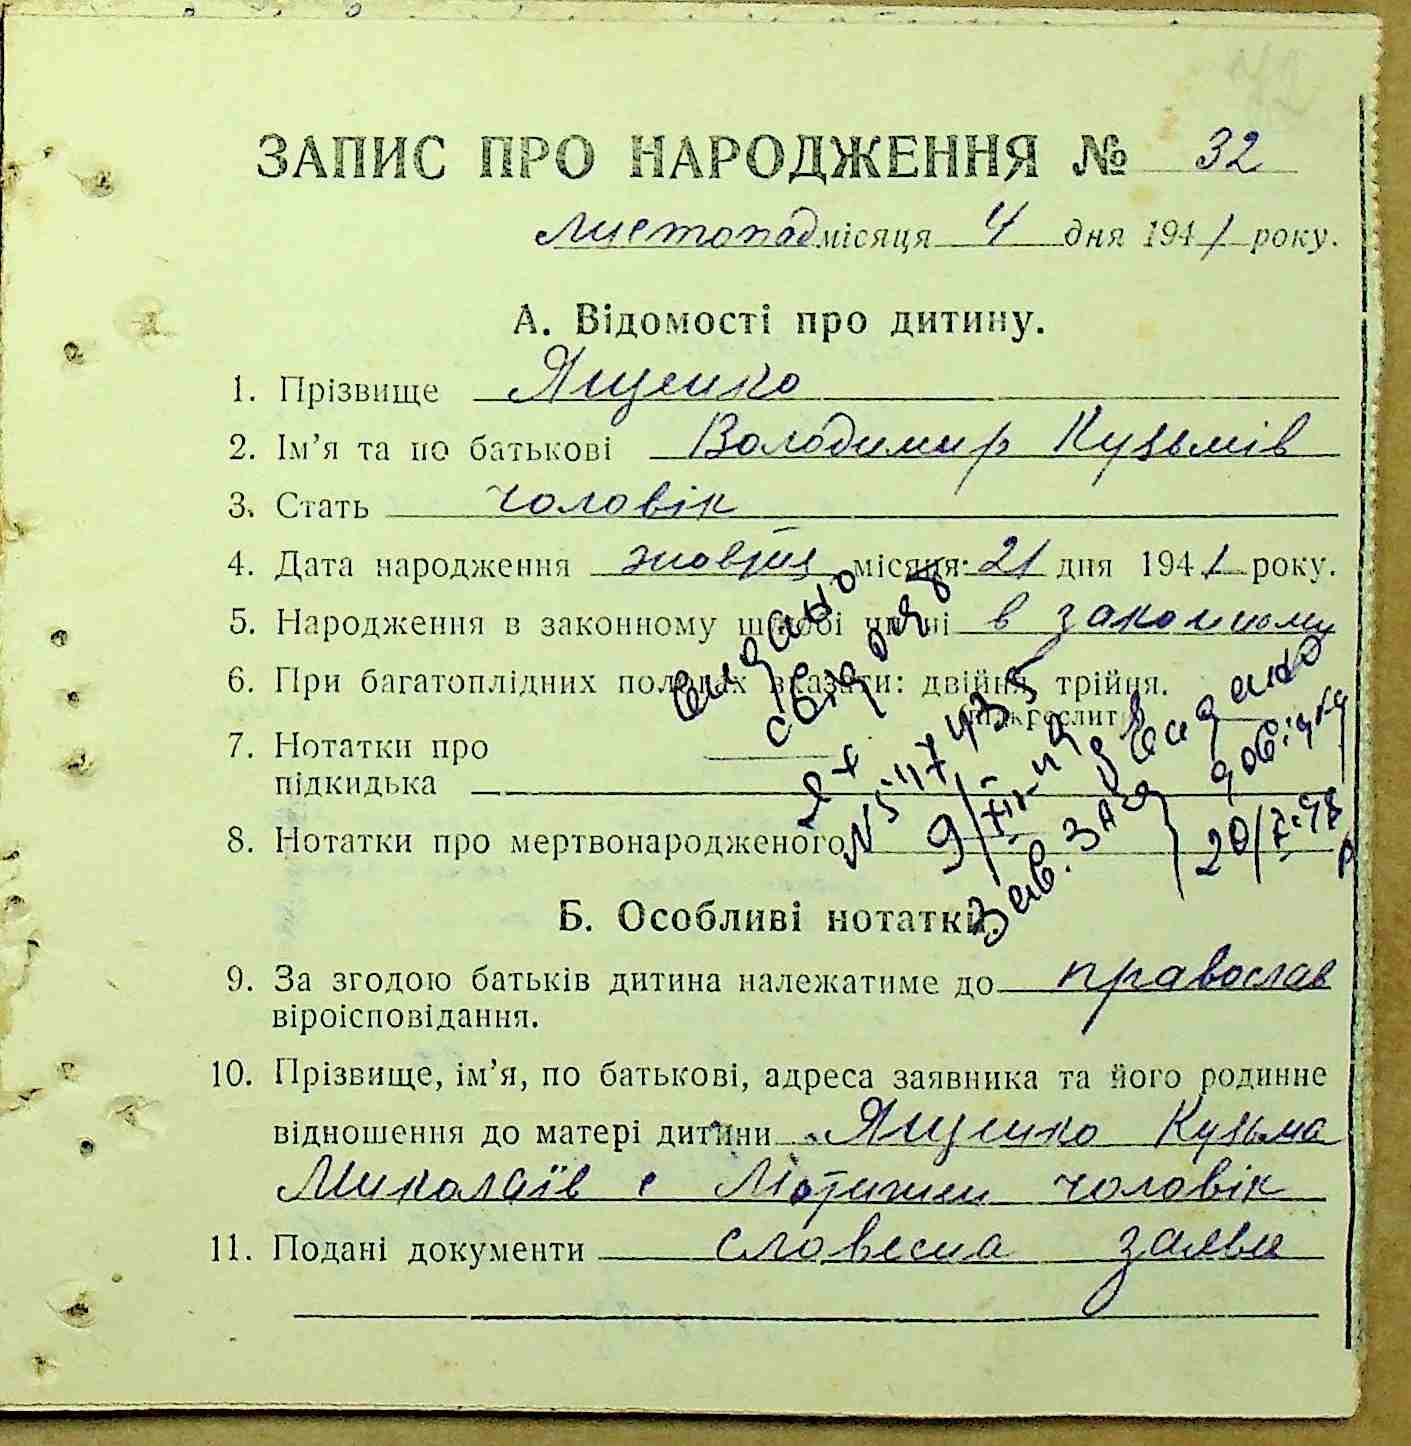 72
ЗАПИС ПРО НАРОДЖЕННЯ № 32
листопад місяця 4 дня 1941 року.
А. Відомості про дитину.
1. Прізвище Ященко
2. Ім’я та по батькові Володимир Кузьмів
3. Стать чоловік
4. Дата народження жовтня місяця 21 дня 1941 року.
5. Народження в законному шлюбі чи ні в законному
6. При багатоплідних пологах вказати: двійня, трійня.
(підкреслити)
7. Нотатки про
підкидька
8. Нотатки про мертвонародженого
видано
свід
№ 517435
9/XII-
Видано
довідку
20/X-48 р
Зав. ЗАГС
Б. Особливі нотатки.
9. За згодою батьків дитина належатиме до православ
віроісповідання.
10. Прізвище, ім’я, по батькові, адреса заявника та його родинне
відношення до матері дитини Ященко Кузьма
Миколаїв с Мотижин чоловік
11. Подані документи словесна заява